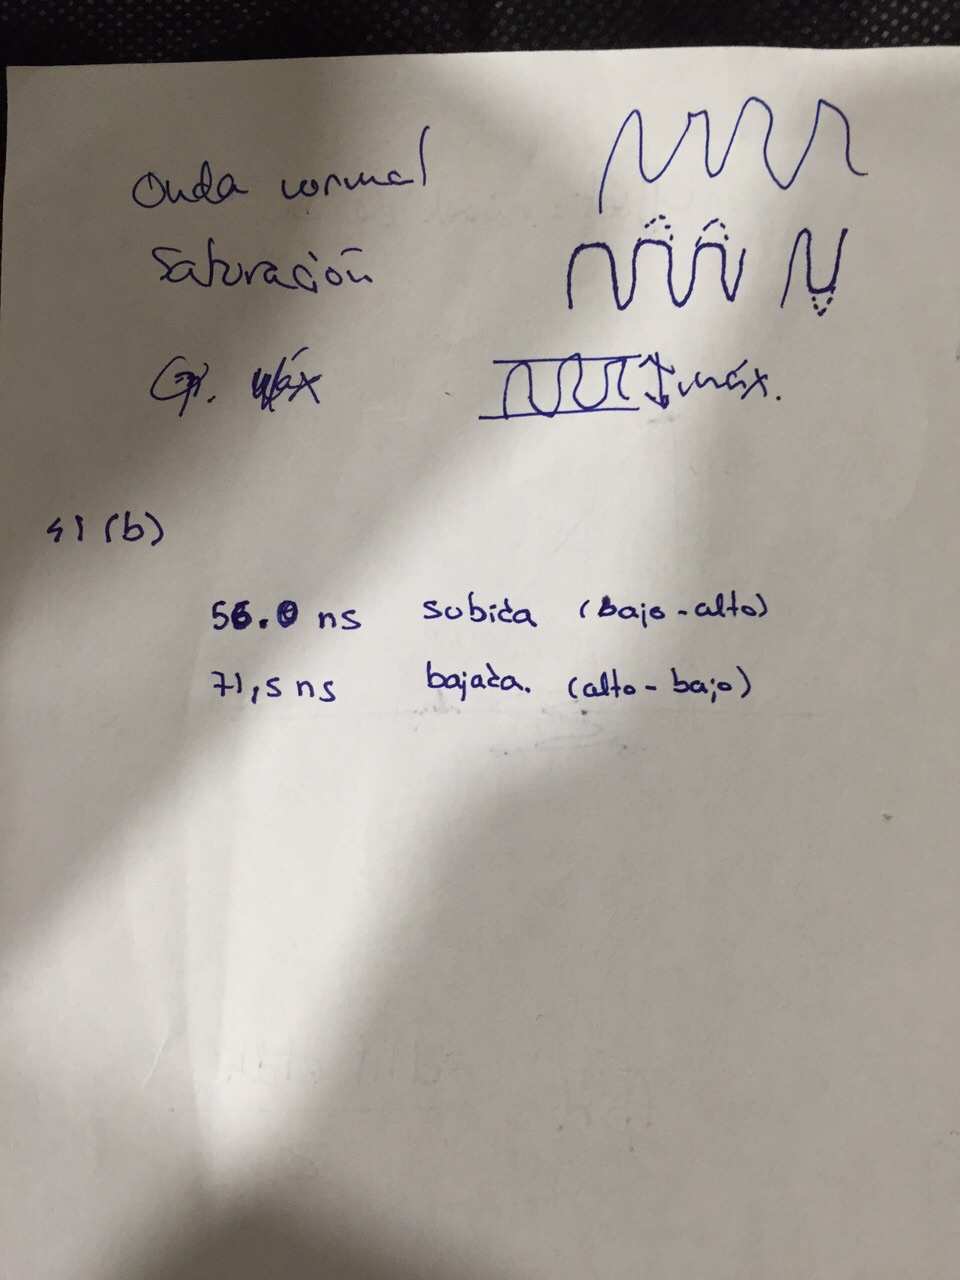 Onda normal
Saturación
Gp. Máx máx.
41 (b)
56.0 ns subida (bajo-alto)
71,5 ns bajada. (alto-bajo)